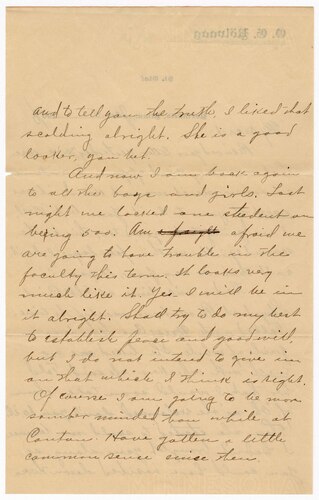 O. E. Rölvaag
and to tell you the truth, I liked that
scolding alright. She is a good
looker, you bet.
And now I am back again
to all the boys and girls. Last
night we locked one student on
being soo. Am afraid we
are going to have trouble in the
faculty this term. It looks very
much like it. Yes I will be in
it alright. Shall try to do my best
to establish peace and goodwill,
but I do not intend to give in
on that which I think is right.
Of course I am going to be more
somber minded than while at
Canton. Have gotten a little
common sense since then.